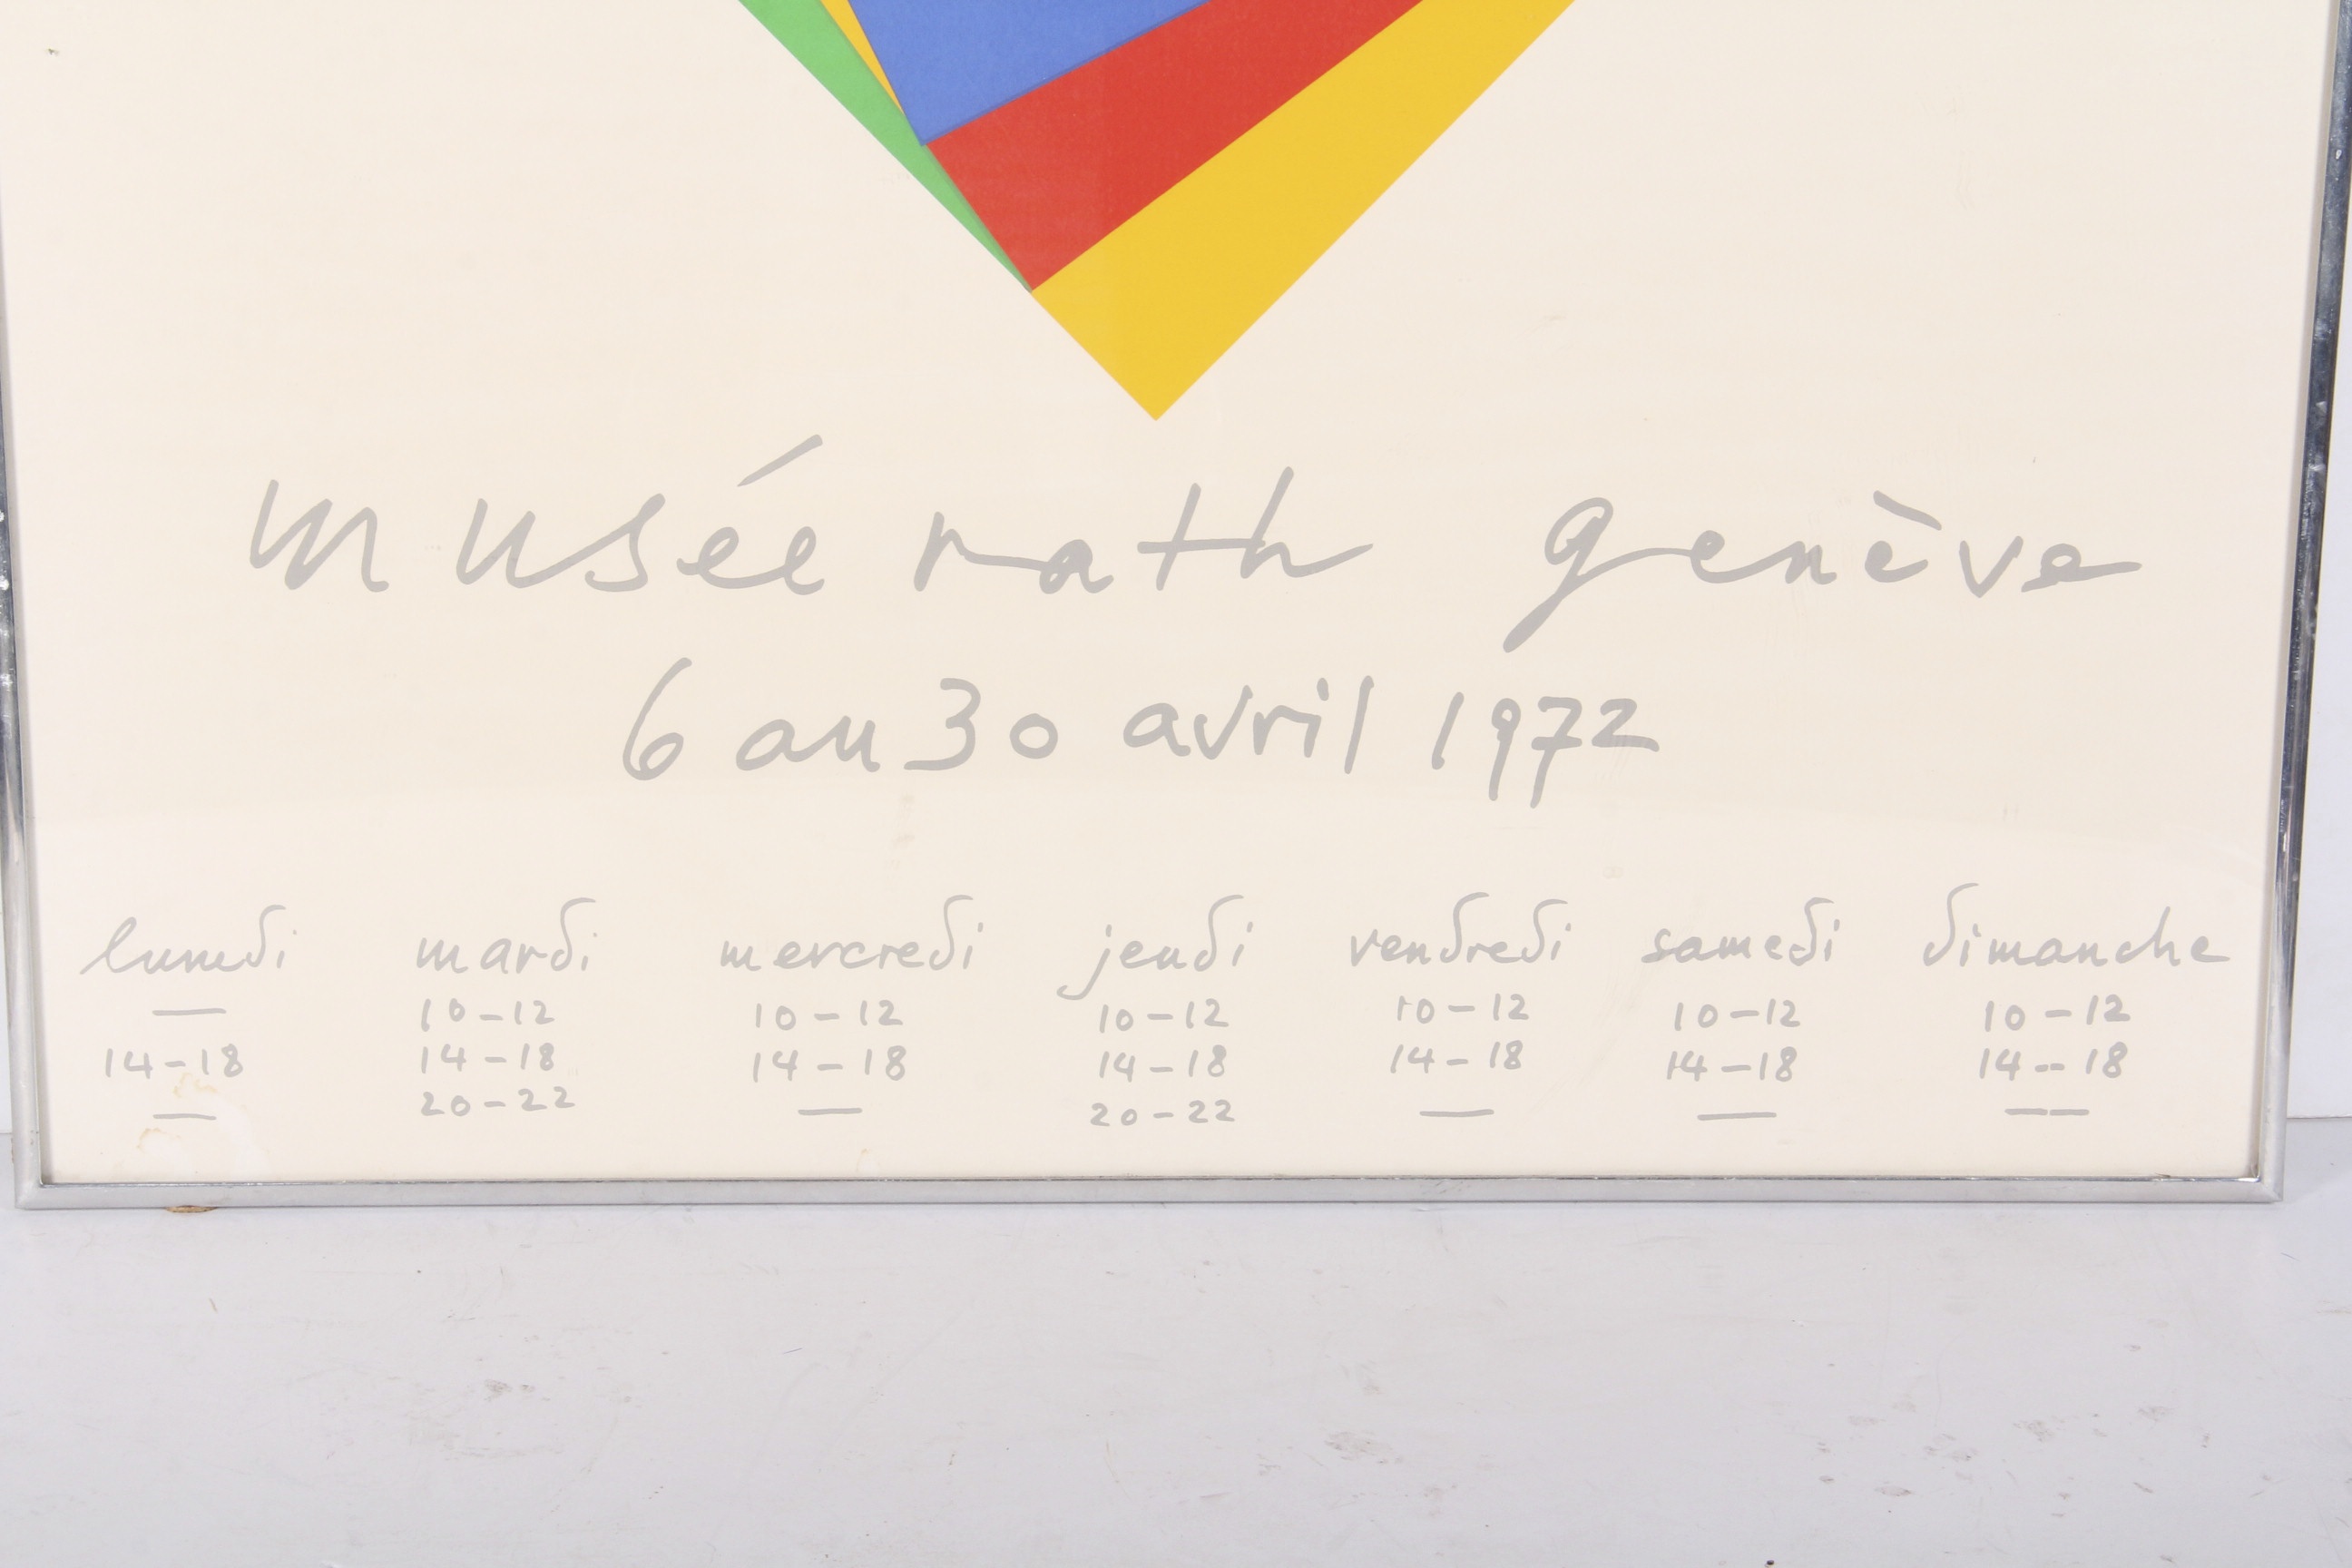 musée rath genève
6 au 30 avril 1972
lundi mardi mercredi jeudi vendredi samedi dimanche
— 10–12 10–12 10–12 10–12 10–12 10–12
14–18 14–18 14–18 14–18 14–18 14–18 14–18
— 20–22 — 20–22 — — —